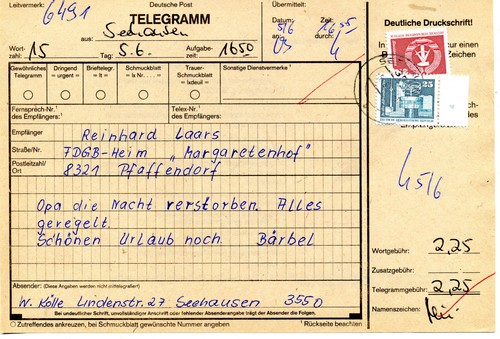 Leitvermerk:
6491
Deutsche Post
TELEGRAMM
aus: Seehausen
Übermittelt:
Datum: 5/6
Zeit: 1655
an:
durch:
Wortzahl: 15
Tag: 5.6.
Aufgabezeit: 1650
Deutsche Druckschrift!
In
zur einen
B
Zeichen
25
Gewöhnliches Telegramm
Dringend = urgent =
Brieftelegr. = lt =
Schmuckblatt = lx ..... =
Trauer-Schmuckblatt = lxdeuil =
Sonstige Dienstvermerke
Fernsprech-Nr. des Empfängers:
Telex-Nr. des Empfängers:
Empfänger Reinhard Laars
Straße/Nr. FDGB-Heim „Margaretenhof"
Postleitzahl/Ort 8321 Pfaffendorf
Opa die Nacht verstorben. Alles
geregelt.
Schönen Urlaub noch. Bärbel
4 5/6
Wortgebühr: 2,25
Zusatzgebühr:
Telegrammgebühr: 2,25
Namenszeichen:
Absender: (Diese Angaben werden nicht mittelegrafiert)
W. Kölle Lindenstr. 27 Seehausen 3550
Bei undeutlicher Schrift, unvollständiger Anschrift oder fehlender Absenderangabe trägt der Absender die Folgen.
Zutreffendes ankreuzen, bei Schmuckblatt gewünschte Nummer angeben
¹ Rückseite beachten